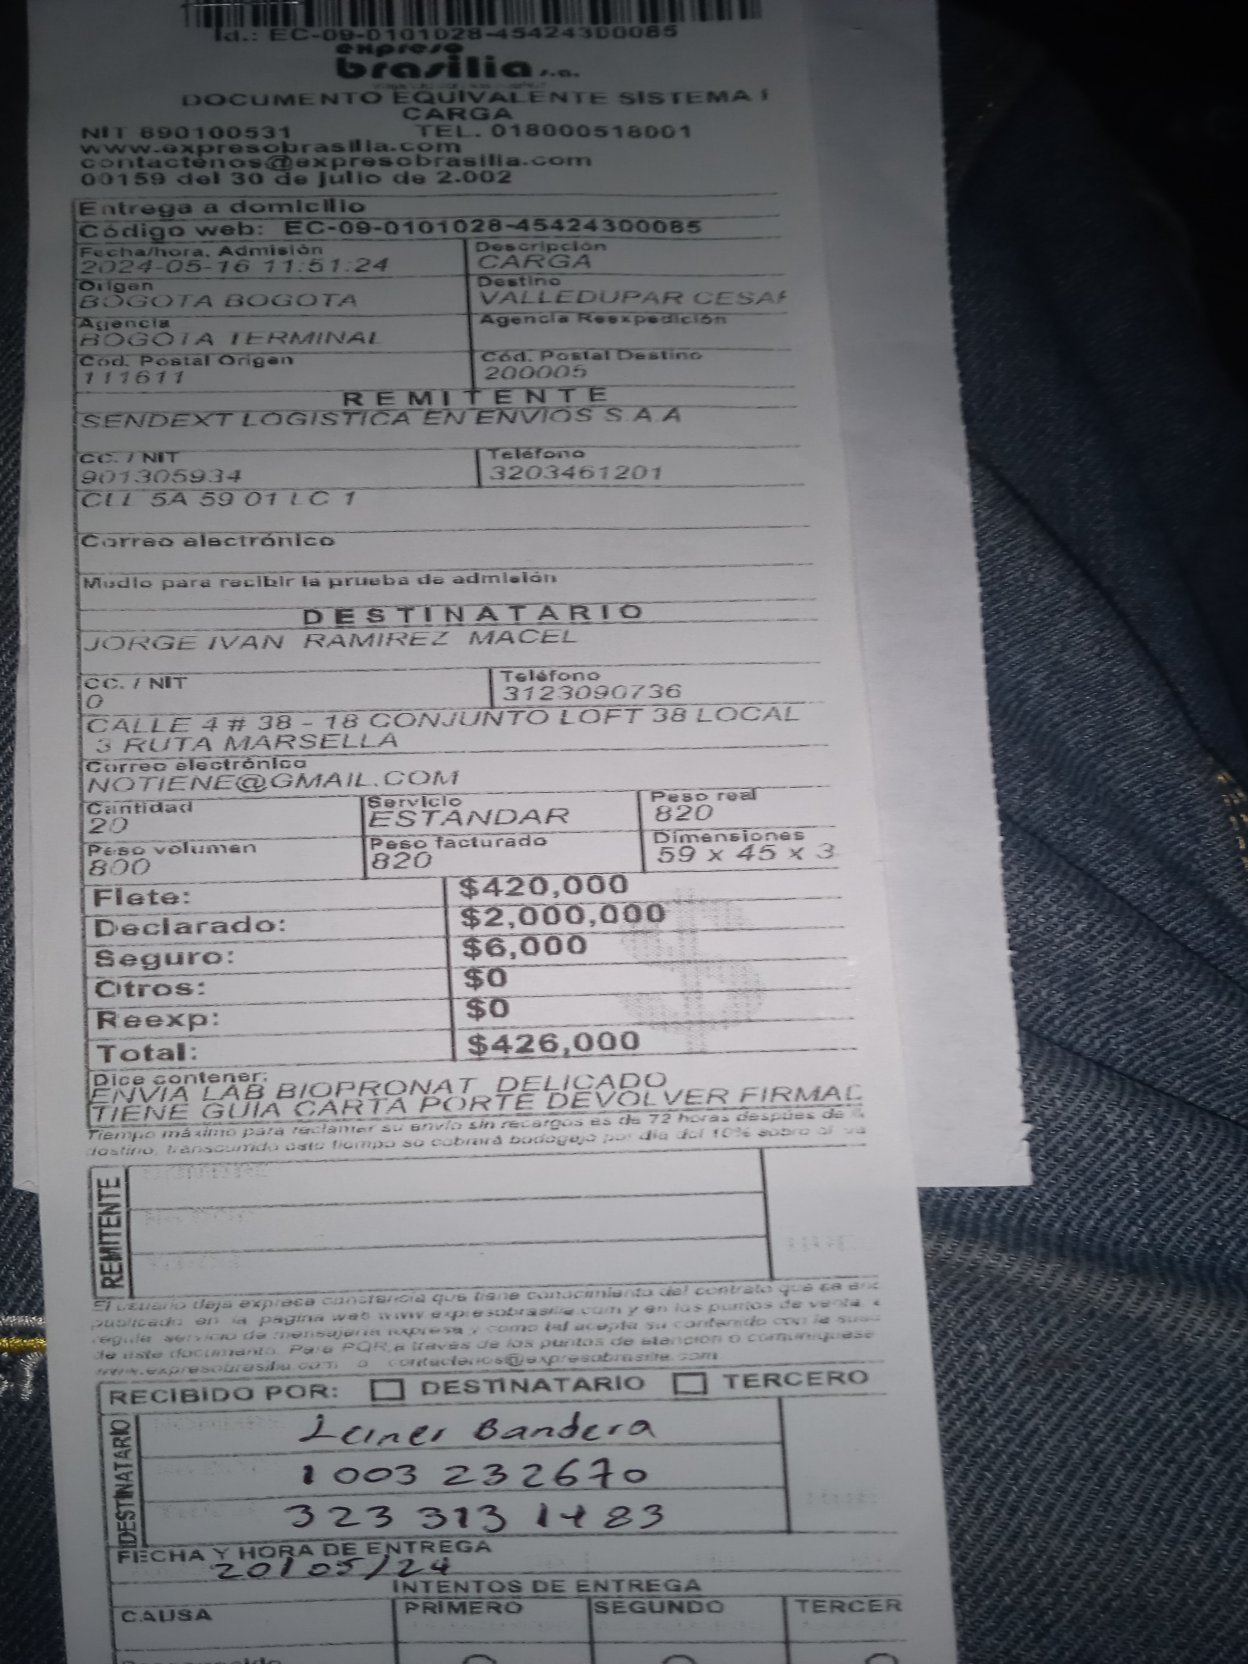 Id.: EC-09-0101028-45424300085
expreso
brasilia s.a.
DOCUMENTO EQUIVALENTE SISTEMA
CARGA
NIT 890100531 TEL. 018000518001
www.expresobrasilia.com
contactenos@expresobrasilia.com
00159 del 30 de julio de 2.002
Entrega a domicilio
Código web: EC-09-0101028-45424300085
Fecha/hora. Admisión Descripción
2024-05-16 11:51:24 CARGA
Origen Destino
BOGOTA BOGOTA VALLEDUPAR CESAR
Agencia Agencia Reexpedición
BOGOTA TERMINAL
Cód. Postal Origen Cód. Postal Destino
111611 200005
REMITENTE
SENDEXT LOGISTICA EN ENVIOS S.A.A
CC. / NIT Teléfono
901305934 3203461201
CLL 5A 59 01 LC 1
Correo electrónico
Medio para recibir la prueba de admisión
DESTINATARIO
JORGE IVAN RAMIREZ MACEL
CC. / NIT Teléfono
0 3123090736
CALLE 4 # 38 - 18 CONJUNTO LOFT 38 LOCAL
3 RUTA MARSELLA
Correo electrónico
NOTIENE@GMAIL.COM
Cantidad Servicio Peso real
20 ESTANDAR 820
Peso volumen Peso facturado Dimensiones
800 820 59 x 45 x 3
Flete: $420,000
Declarado: $2,000,000
Seguro: $6,000
Otros: $0
Reexp: $0
Total: $426,000
Dice contener:
ENVIA LAB BIOPRONAT DELICADO
TIENE GUIA CARTA PORTE DEVOLVER FIRMAD
Tiempo máximo para reclamar su envío sin recargos es de 72 horas después de
destino, transcurrido este tiempo se cobrará bodegaje por día del 10% sobre el va
REMITENTE
El usuario deja expresa constancia que tiene conocimiento del contrato que se enc
publicado en la página web www.expresobrasilia.com y en los puntos de venta,
regula servicio de mensajería expresa y como tal acepta su contenido con la sus
de este documento. Para PQR a través de los puntos de atención o comuníquese
www.expresobrasilia.com o contactenos@expresobrasilia.com
RECIBIDO POR: DESTINATARIO TERCERO
DESTINATARIO
Leiner Bandera
1003 232670
323 313 1483
FECHA Y HORA DE ENTREGA
20/05/24
INTENTOS DE ENTREGA
CAUSA PRIMERO SEGUNDO TERCER